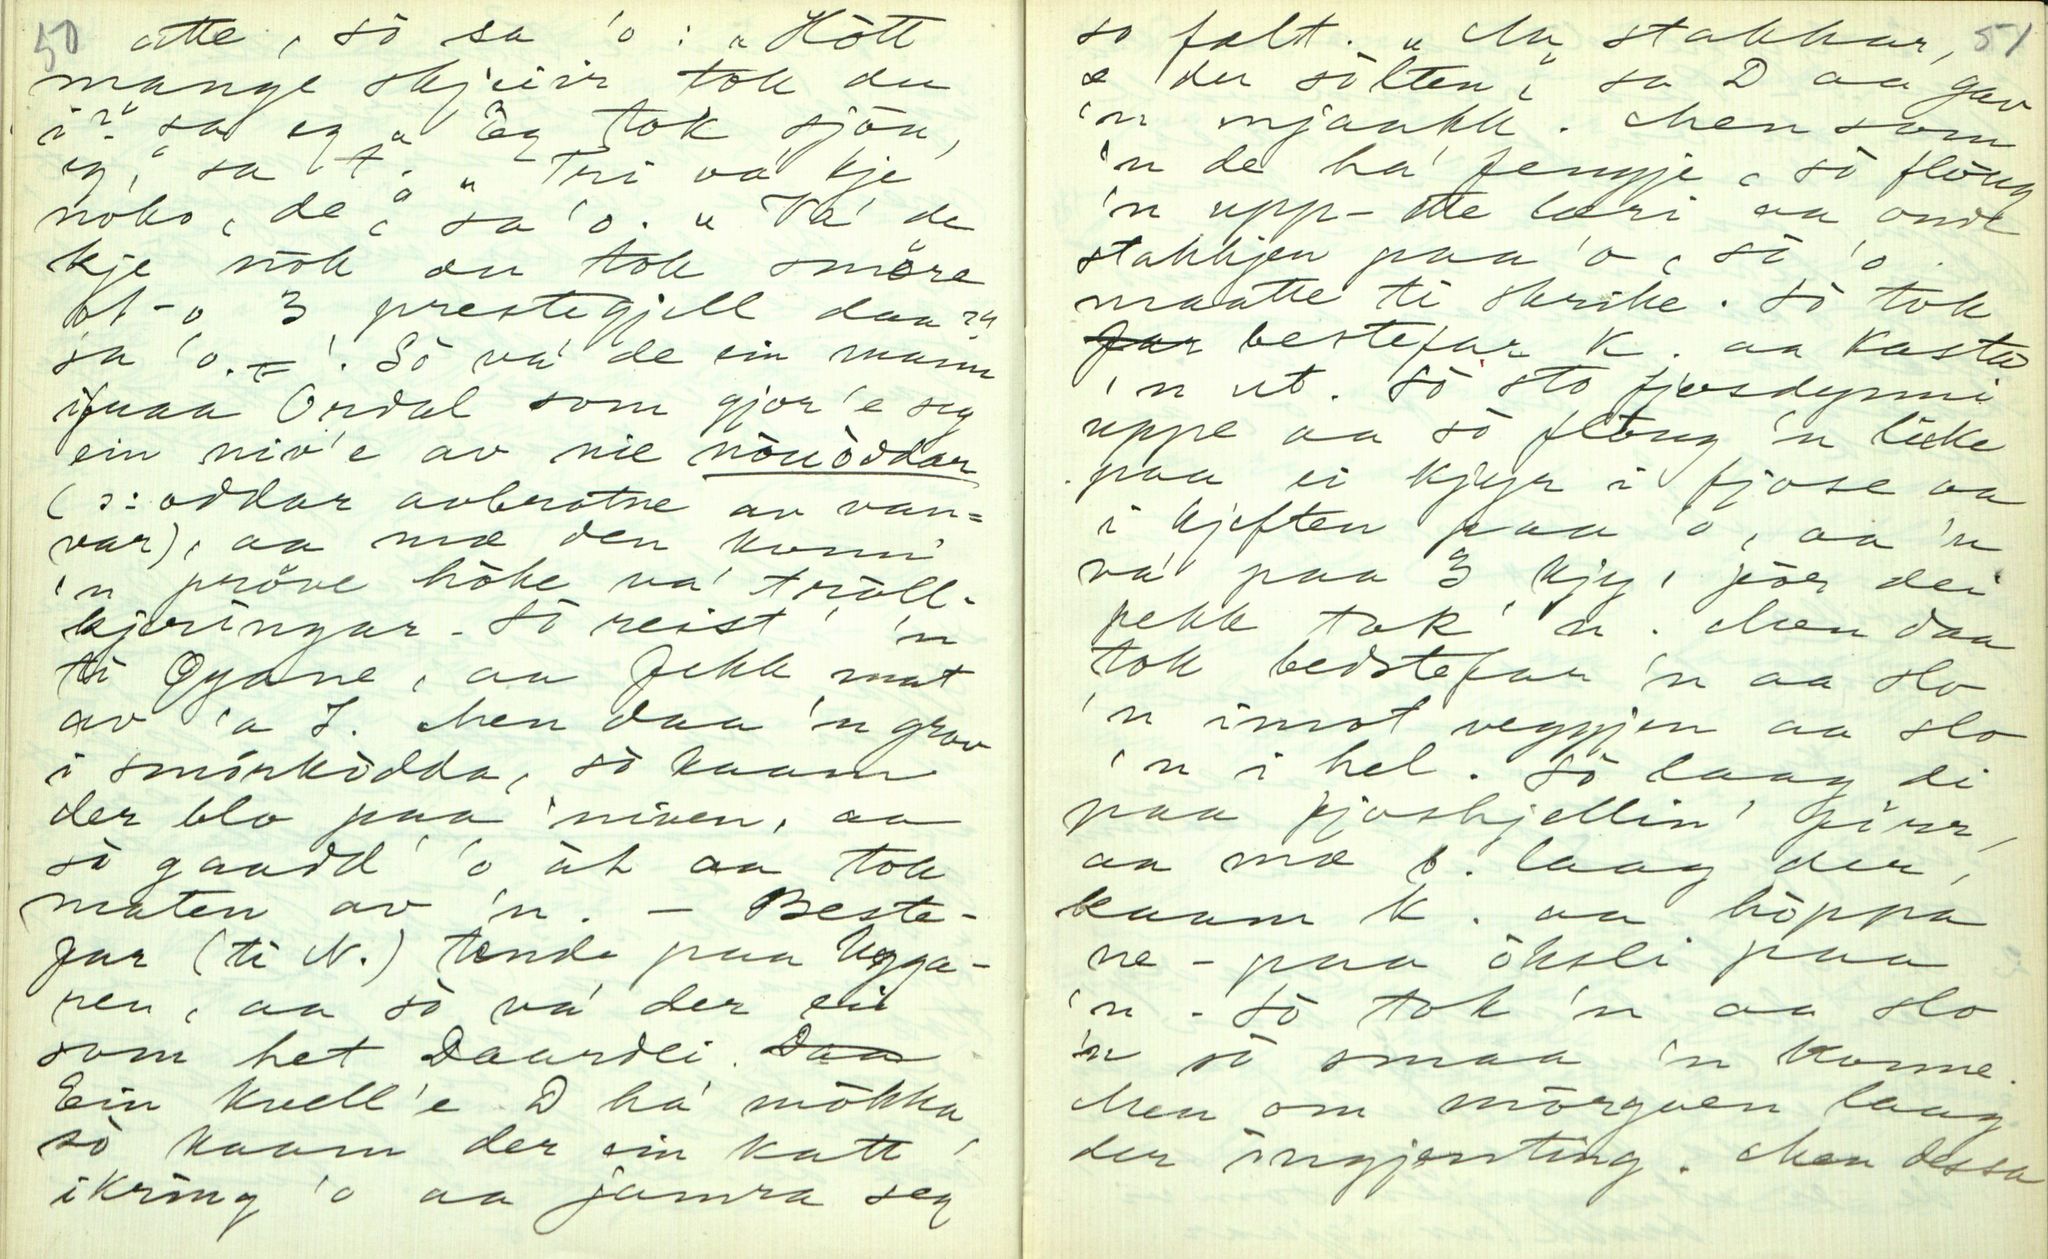 50
atte, sò sa 'o: „Hòtt
mange skjeiir tok du
i?" sa eg „Eg tok sjöu,
eg," sa T. „Tri va' kje
nòko, de," sa 'o. „Va' de
kje nòk du tok smöre
òt-o 3 prestegjell daa?"
sa 'o. – Sò va' de ein mann
ifraa Ordal som gjor'e seg
ein niv'e av nie nòuòddar
(ɔ: oddar avbrotne av van=
var), aa mæ den konn'
'n pröve hòke va' tròll-
kjeringar. Sò reist' 'n
ti Oyane, aa fekk mat
av 'a J. Men daa 'n grov
i smörkòdda, sò kaam
der blo paa 'niven, aa
sò gaadd' 'o àt aa tok
maten av 'n. – Beste-
far (ti N.) tende paa Ugga-
ren, aa sò va' der ei
som het Daardei. Daa
Ein kvell'e D ha' mòkka,
sò kaam der ein katt
ikring 'o aa jamra seg
51
so fælt. „Aa, stakkar,
æ der sòlten," sa D aa gav
'n mjaakk. Men som
'n de ha' fengje, sò flöug
'n upp-tte læri aa ondt
stakkjen paa 'o, sò 'o
maatte ti skrike. Sò tok
far bestefar K. aa kasta
'n ut. Sò sto fjosdynni
uppe aa sò flöug 'n like
paa ei kjyr i fjose aa
i kjeften paa 'o, aa 'n
va' paa 3 kjy, för dei
fekk tok' 'n. Men daa
tok bedstefar 'n aa slo
'n imot veggjen aa slo
'n i hel. Sò laag di
paa fjoshjellin' firr,
aa mæ b. laag der,
kaam K. aa hòppa
ne-paa òksli paa
'n. Sò tok 'n aa slo
'n sò smaa 'n konne.
Men om mòrgaen laag
der ingjenting. Men dessa